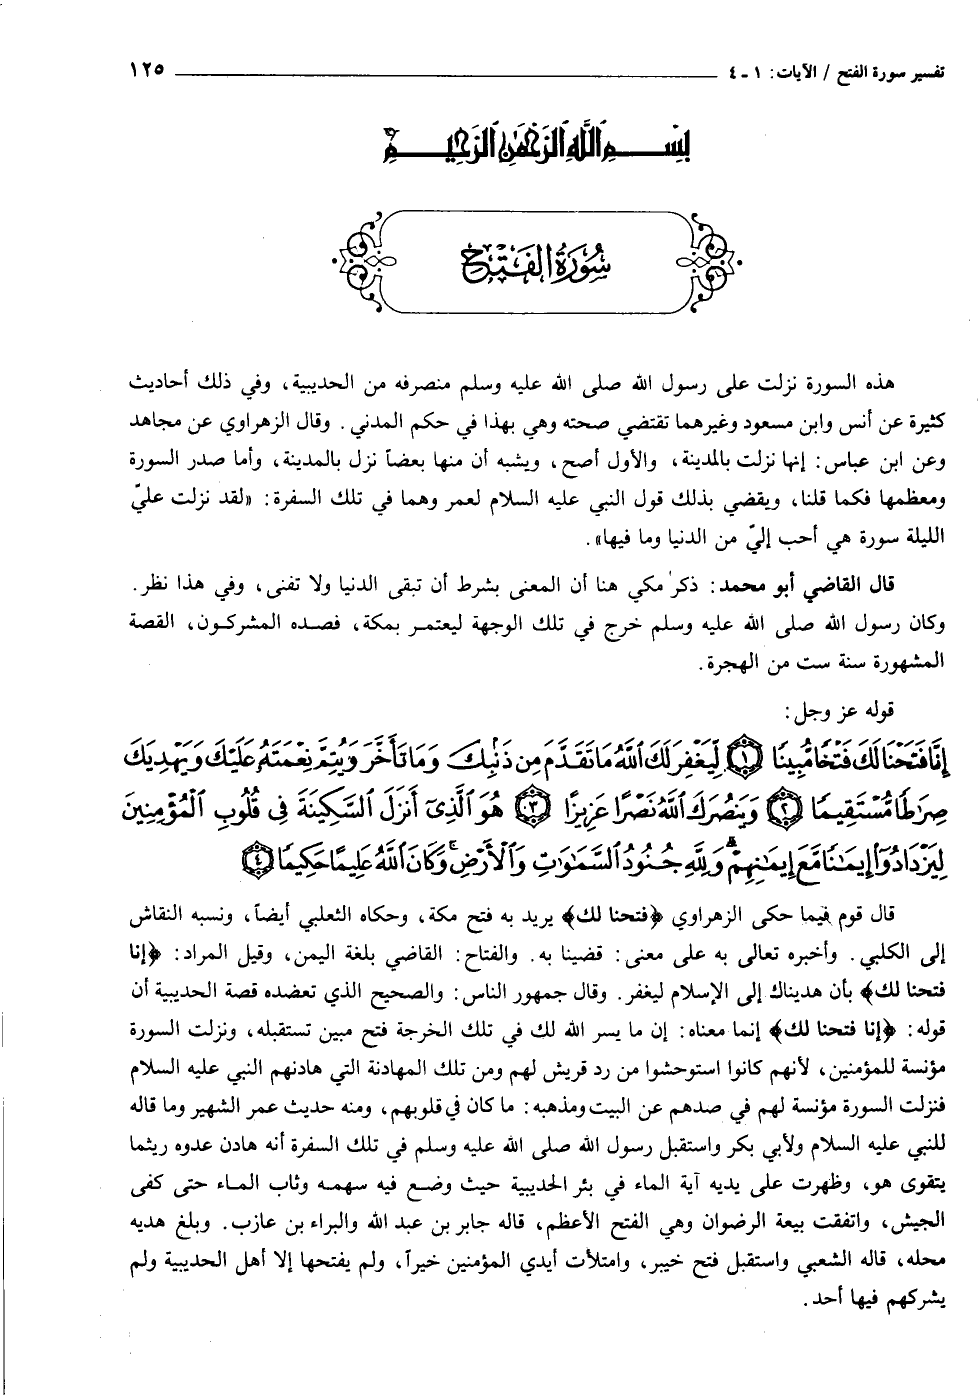 تفسير سورة الفتح / الآيات: ١ - ٤ ١٢٥
بِسْمِ اللَّهِ الرَّحْمَٰنِ الرَّحِيمِ
سُورَةُ الفَتْحِ
هذه السورة نزلت على رسول الله صلى الله عليه وسلم منصرفه من الحديبية، وفي ذلك أحاديث
كثيرة عن أنس وابن مسعود وغيرهما تقتضي صحته وهي بهذا في حكم المدني. وقال الزهراوي عن مجاهد
وعن ابن عباس: إنها نزلت بالمدينة، والأول أصح، ويشبه أن منها بعضاً نزل بالمدينة، وأما صدر السورة
ومعظمها فكما قلنا، ويقضي بذلك قول النبي عليه السلام لعمر وهما في تلك السفرة: «لقد نزلت عليّ
الليلة سورة هي أحب إليّ من الدنيا وما فيها».
قال القاضي أبو محمد: ذكر مكي هنا أن المعنى بشرط أن تبقى الدنيا ولا تفنى، وفي هذا نظر.
وكان رسول الله صلى الله عليه وسلم خرج في تلك الوجهة ليعتمر بمكة، فصده المشركون، القصة
المشهورة سنة ست من الهجرة.
قوله عز وجل:
إِنَّا فَتَحْنَا لَكَ فَتْحًا مُّبِينًا ﴿١﴾ لِّيَغْفِرَ لَكَ اللَّهُ مَا تَقَدَّمَ مِن ذَنۢبِكَ وَمَا تَأَخَّرَ وَيُتِمَّ نِعْمَتَهُۥ عَلَيْكَ وَيَهْدِيَكَ
صِرَٰطًا مُّسْتَقِيمًا ﴿٢﴾ وَيَنصُرَكَ اللَّهُ نَصْرًا عَزِيزًا ﴿٣﴾ هُوَ الَّذِىٓ أَنزَلَ السَّكِينَةَ فِى قُلُوبِ الْمُؤْمِنِينَ
لِيَزْدَادُوٓا۟ إِيمَٰنًا مَّعَ إِيمَٰنِهِمْ ۗ وَلِلَّهِ جُنُودُ السَّمَٰوَٰتِ وَالْأَرْضِ ۚ وَكَانَ اللَّهُ عَلِيمًا حَكِيمًا ﴿٤﴾
قال قوم فيما حكى الزهراوي ﴿فتحنا لك﴾ يريد به فتح مكة، وحكاه الثعلبي أيضاً، ونسبه النقاش
إلى الكلبي. وأخبره تعالى به على معنى: قضينا به. والفتاح: القاضي بلغة اليمن، وقيل المراد: ﴿إنا
فتحنا لك﴾ بأن هديناك إلى الإسلام ليغفر. وقال جمهور الناس: والصحيح الذي تعضده قصة الحديبية أن
قوله: ﴿إنا فتحنا لك﴾ إنما معناه: إن ما يسر الله لك في تلك الخرجة فتح مبين تستقبله، ونزلت السورة
مؤنسة للمؤمنين، لأنهم كانوا استوحشوا من رد قريش لهم ومن تلك المهادنة التي هادنهم النبي عليه السلام
فنزلت السورة مؤنسة لهم في صدهم عن البيت ومذهبه: ما كان في قلوبهم، ومنه حديث عمر الشهير وما قاله
للنبي عليه السلام ولأبي بكر واستقبل رسول الله صلى الله عليه وسلم في تلك السفرة أنه هادن عدوه ريثما
يتقوى هو، وظهرت على يديه آية الماء في بئر الحديبية حيث وضع فيه سهمه وثاب الماء حتى كفى
الجيش، واتفقت بيعة الرضوان وهي الفتح الأعظم، قاله جابر بن عبد الله والبراء بن عازب. وبلغ هديه
محله، قاله الشعبي واستقبل فتح خيبر، وامتلأت أيدي المؤمنين خيراً، ولم يفتحها إلا أهل الحديبية ولم
يشركهم فيها أحد.